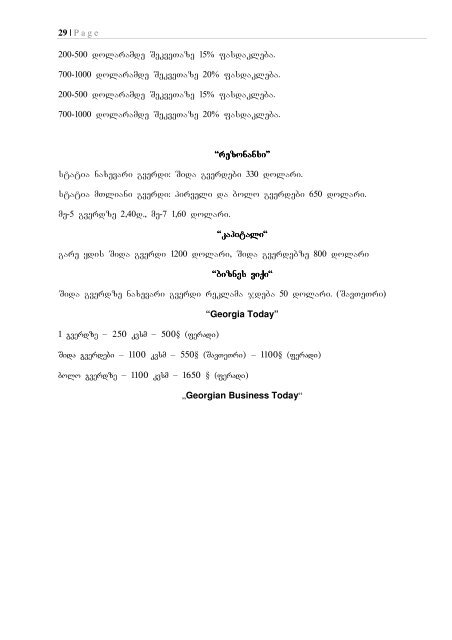 29 | P a g e
200-500 დოლარამდე შეკვეთაზე 15% ფასდაკლება.
700-1000 დოლარამდე შეკვეთაზე 20% ფასდაკლება.
200-500 დოლარამდე შეკვეთაზე 15% ფასდაკლება.
700-1000 დოლარამდე შეკვეთაზე 20% ფასდაკლება.
“რეზონანსი”
სტატია ნახევარი გვერდი: შიდა გვერდები 330 დოლარი.
სტატია მთლიანი გვერდი: პირველი და ბოლო გვერდები 650 დოლარი.
მე-5 გვერდზე 2,40დ., მე-7 1,60 დოლარი.
“კაპიტალი“
გარე ყდის შიდა გვერდი 1200 დოლარი, შიდა გვერდებზე 800 დოლარი
“ბიზნეს ვიქი“
შიდა გვერდზე ნახევარი გვერდი რეკლამა ჯდება 50 დოლარი. (შავთეთრი)
“Georgia Today”
1 გვერდზე – 250 კვსმ – 500$ (ფერადი)
შიდა გვერდები – 1100 კვსმ – 550$ (შავთეთრი) – 1100$ (ფერადი)
ბოლო გვერდზე – 1100 კვსმ – 1650 $ (ფერადი)
„Georgian Business Today“